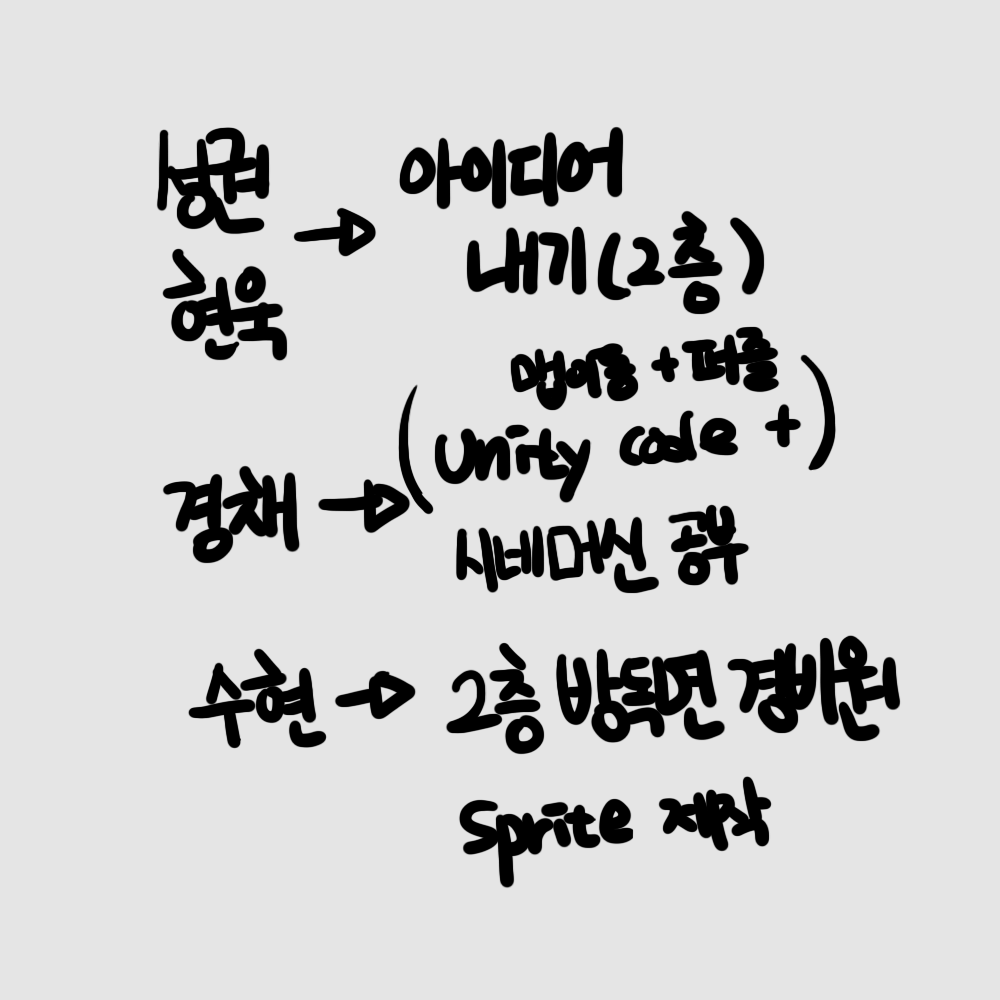 성권 → 아이디어
현욱 내기(2층)
맵이동 + 퍼즐
경채 → (Unity code +)
시네머신 공부
수현 → 2층 방독면 경비원
Sprite 제작